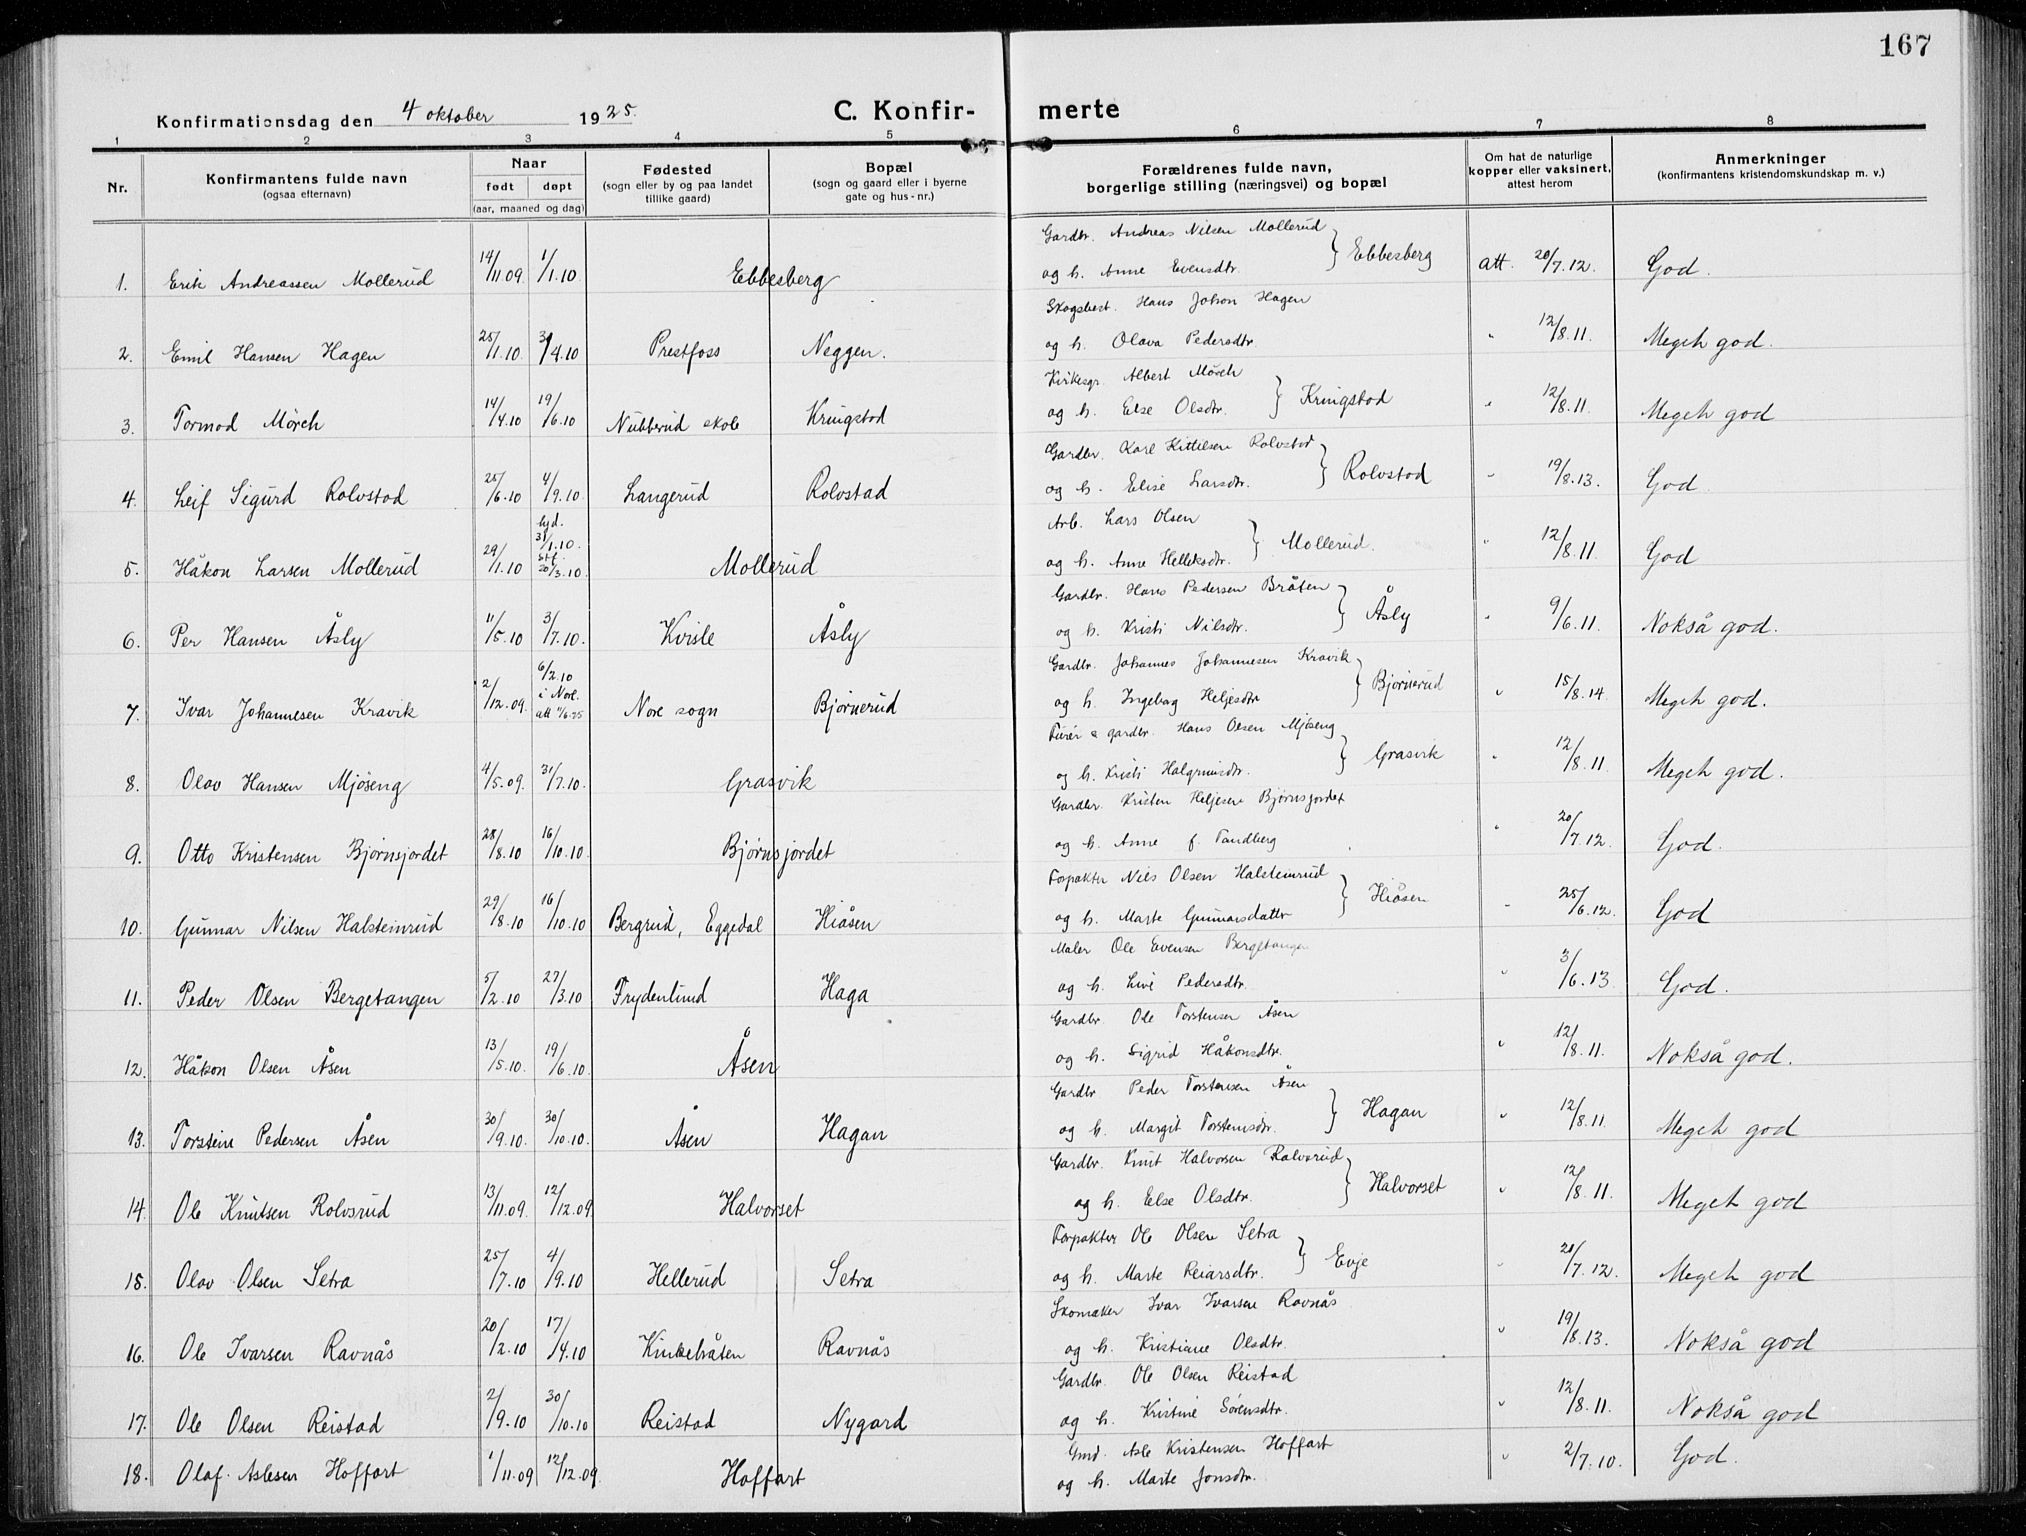 167
Konfirmationsdag den 4 oktober 1925. C. Konfir- merte
1 2 3 4 5 6 7 8
Nr. Konfirmantens fulde navn (ogsaa efternavn) Naar født døpt (aar, maaned og dag) Fødested (sogn eller by og paa landet tillike gaard) Bopæl (sogn og gaard eller i byerne gate og hus-nr.) Forældrenes fulde navn, borgerlige stilling (næringsvei) og bopæl Om hat de naturlige kopper eller vaksinert, attest herom Anmerkninger (konfirmantens kristendomskundskap m. v.)
Gardbr. Andreas Nilsen Mollerud
1. Erik Andreassen Mollerud 14/11.09 1/1.10 Ebbesberg og h. Anne Evensdtr. } Ebbesberg att. 20/7.12. God.
Skogsbest. Hans Johson Hagen
2. Emil Hansen Hagen 25/1.10 3/4.10 Prestfoss Neggen. og h. Olava Pedersdtr. " 12/8.11. Meget god.
Kirkesgr. Albert Mörch
3. Tormod Mörch 14/4.10 19/6.10 Nubberud skole Kringstad og h. Else Olsdtr. } Kringstad " 12/8.11. Meget god
Gardbr. Karl Kittilsen Rolvstad
4. Leif Sigurd Rolvstad 25/6.10 4/9.10 Langerud Rolvstad og h. Elise Larsdtr. } Rolvstad " 19/8.13. God
Arb. Lars Olsen
5. Håkon Larsen Mollerud 29/1.10 hjd. 31/1.10. stf. 20/3.10. Mollerud og h. Anne Helleksdtr. } Mollerud. " 12/8.11. God
Gardbr. Hans Pedersen Bråten
6. Per Hansen Åsly 11/5.10 3/7.10. Kvisle Åsly og h. Kristi Nilsdtr. } Åsly " 9/6.11. Nokså god.
Gardbr. Johannes Johannesen Kravik
7. Ivar Johannesen Kravik 2/12.09. 6/2.10 i Nore. att 11/6.25 Nore sogn Bjørnerud og h. Ingebog Heljesdtr } Bjørnerud " 15/8.14. Meget god.
Furér & gardbr. Hans Olsen Mjøseng
8. Olav Hansen Mjøseng 4/5.09. 31/7.10. Grasvik og h. Kristi Halgrimsdtr. } Grasvik " 12/8.11. Meget god.
Gardbr. Kristen Heljesen Bjørnsjordet
9. Otto Kristensen Bjørnsjordet 28/8.10 16/10.10. Bjørnsjordet og h. Anne f. Tandberg " 20/7.12. God.
Forpakter Nils Olsen Halsteinrud
10. Gunnar Nilsen Halsteinrud 29/8.10 16/10.10 Bergrud, Eggedal Hiåsen og h. Marte Gunnarsdattr } Hiåsen " 25/6.12. God
Maler Ole Evensen Bergetangen
11. Peder Olsen Bergetangen 5/2.10 27/3.10 Frydenlund Haga og h. Live Pedersdtr. " 3/6.13. God.
Gardbr. Ole Torstensen Åsen
12. Håkon Olsen Åsen 13/5.10. 19/6.10. Åsen og h. Sigrid Håkonsdtr. " 12/8.11. Nokså god.
Gardbr Peder Torstensen Åsen
13. Torstein Pedersen Åsen 30/9.10. 30/10.10. Åsen Hagan og h. Margit Torsteinsdtr. } Hagan " 12/8.11. Meget god
Gardbr. Knut Halvorsen Rolvsrud
14. Ole Knutsen Rolvsrud 13/11.09. 12/12.09. Halvorset og h. Else Olsdtr. } Halvorset " 12/8.11. Meget god
Forpakter Ole Olsen Setra
15. Olav Olsen Setra 25/7.10 4/9.10 Hellerud Setra og h. Marte Reiarsdtr. } Evje " 20/7.12. Meget god
Skomaker Ivar Ivarsen Ravnås
16. Ole Ivarsen Ravnås 20/2.10 17/4.10 Kinkebråten Ravnås og h. Kristiane Olsdtr. " 19/8.13. Nokså god
Gardbr. Ole Olsen Reistad
17. Ole Olsen Reistad 2/9.10 30/10.10 Reistad Nygard og h. Kristine Sørensdtr. " 12/8.11. Nokså god
Gmd. Asle Kristensen Hoffart
18. Olaf Aslesen Hoffart 1/11.09 12/12.09. Hoffart og h. Marte Jonsdtr. " 2/7.10. God.